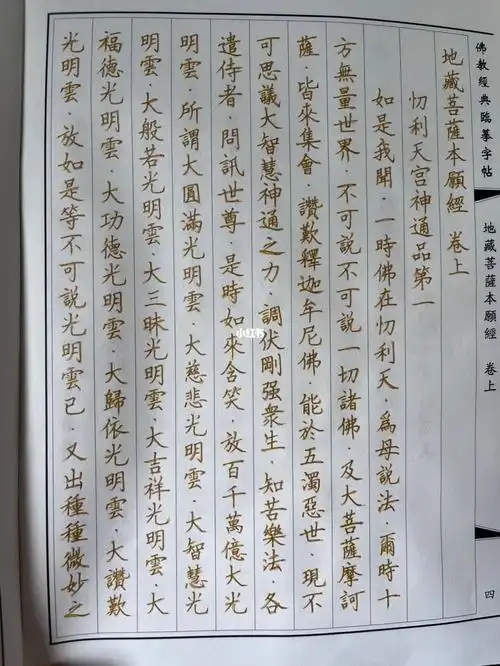 佛教經典臨摹字帖
地藏菩薩本願經 卷上
四
地藏菩薩本願經 卷上
忉利天宮神通品第一
如是我聞．一時佛在忉利天．為母說法．爾時十
方無量世界．不可說不可說一切諸佛．及大菩薩摩訶
薩．皆來集會．讚歎釋迦牟尼佛．能於五濁惡世．現不
可思議大智慧神通之力．調伏剛強衆生．知苦樂法．各
遣侍者．問訊世尊．是時如來含笑．放百千萬億大光
明雲．所謂大圓滿光明雲．大慈悲光明雲．大智慧光
明雲．大般若光明雲．大三昧光明雲．大吉祥光明雲．大
福德光明雲．大功德光明雲．大歸依光明雲．大讚歎
光明雲．放如是等不可說光明雲已．又出種種微妙之
小红书